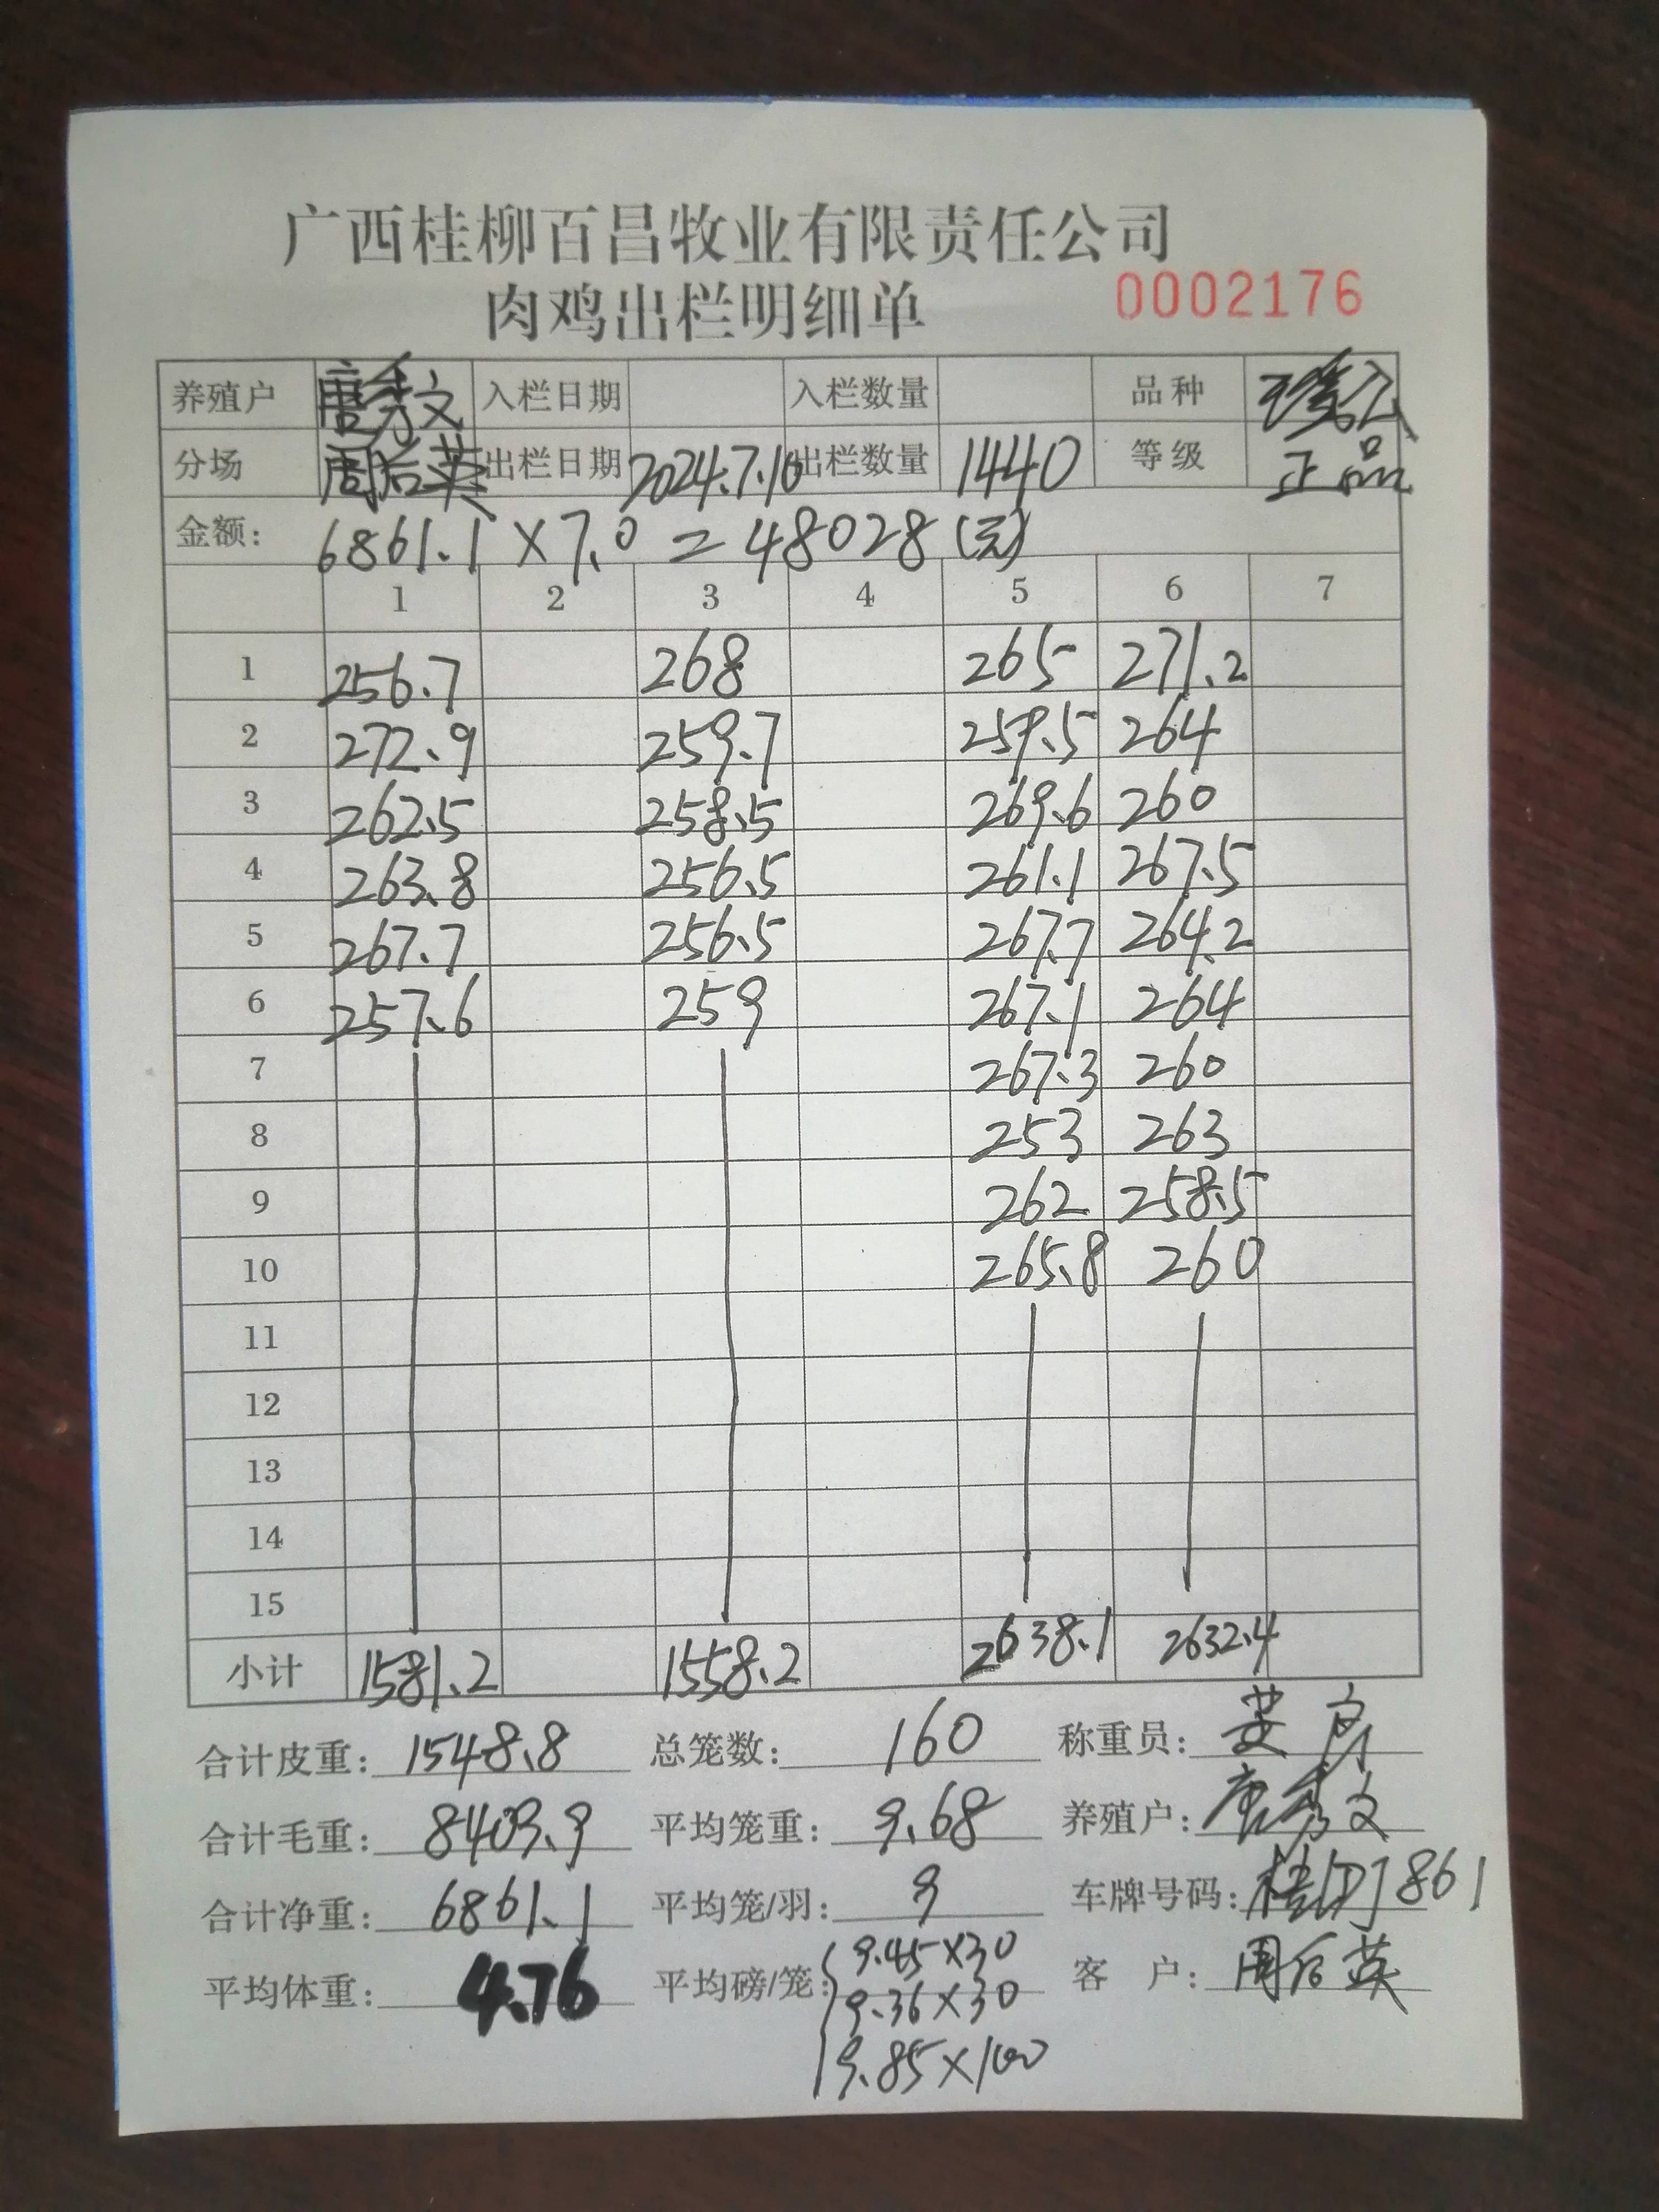 广西桂柳百昌牧业有限责任公司
肉鸡出栏明细单 0002176
养殖户 唐秀文 入栏日期 入栏数量 品种
分场 周后英 出栏日期 2024.7.10 出栏数量 1440 等级 正品
金额: 6861.1 × 7.0 = 48028 (元)
1 2 3 4 5 6 7
1 256.7 268 265 271.2
2 272.9 259.7 259.5 264
3 262.5 258.5 269.6 260
4 263.8 256.5 261.1 267.5
5 267.7 256.5 267.7 264.2
6 257.6 259 267.1 264
7 267.3 260
8 253 263
9 262 258.5
10 265.8 260
11
12
13
14
15
小计 1581.2 1558.2 2638.1 2632.4
合计皮重: 1548.8 总笼数: 160 称重员:
合计毛重: 8409.9 平均笼重: 9.68 养殖户: 唐秀文
合计净重: 6861.1 平均笼/羽: 9 车牌号码: 861
平均体重: 4.76 平均磅/笼: 9.45×30 客 户: 周后英
9.36×30
9.85×100